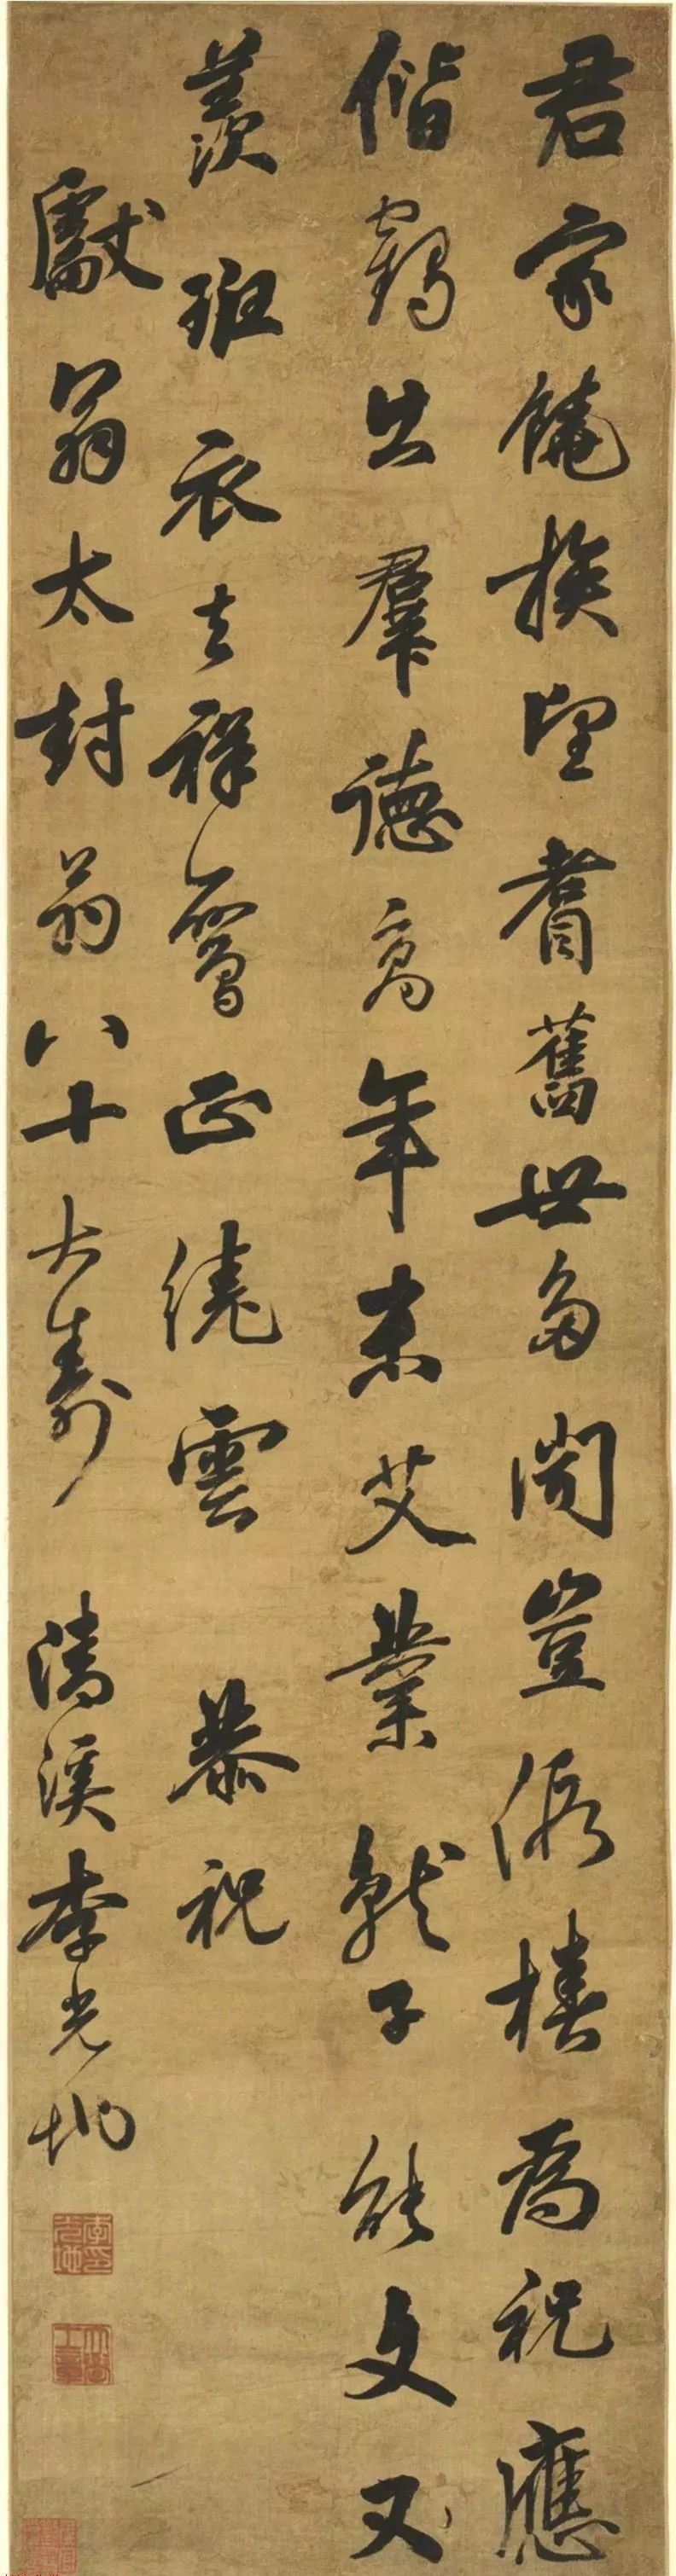 君家饒族望耆舊世多聞豈假椿為祝應
偕鶴出羣德高年未艾業就子能文又
羨班衣去祥正繞雲 恭祝
獻翁太封翁八十大壽 清溪李光地
李光地印